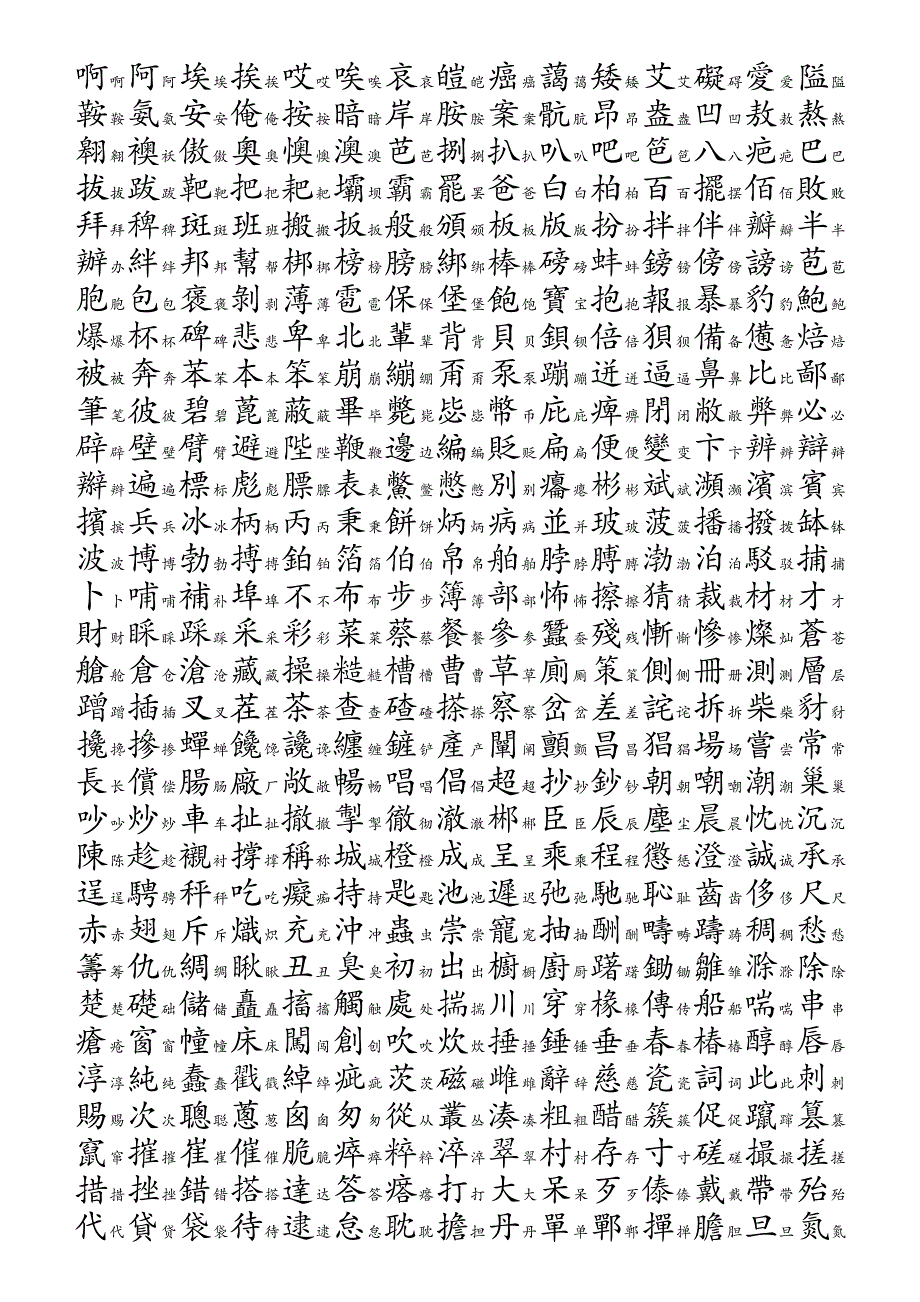 啊啊阿阿埃埃挨挨哎哎唉唉哀哀皚皑癌癌藹蔼矮矮艾艾礙碍愛爱隘隘
鞍鞍氨氨安安俺俺按按暗暗岸岸胺胺案案骯肮昂昂盎盎凹凹敖敖熬熬
翱翱襖袄傲傲奧奥懊懊澳澳芭芭捌捌扒扒叭叭吧吧笆笆八八疤疤巴巴
拔拔跋跋靶靶把把耙耙壩坝霸霸罷罢爸爸白白柏柏百百擺摆佰佰敗败
拜拜稗稗斑斑班班搬搬扳扳般般頒颁板板版版扮扮拌拌伴伴瓣瓣半半
辦办絆绊邦邦幫帮梆梆榜榜膀膀綁绑棒棒磅磅蚌蚌鎊镑傍傍謗谤苞苞
胞胞包包褒褒剝剥薄薄雹雹保保堡堡飽饱寶宝抱抱報报暴暴豹豹鮑鲍
爆爆杯杯碑碑悲悲卑卑北北輩辈背背貝贝鋇钡倍倍狽狈備备憊惫焙焙
被被奔奔苯苯本本笨笨崩崩繃绷甭甭泵泵蹦蹦迸迸逼逼鼻鼻比比鄙鄙
筆笔彼彼碧碧蓖蓖蔽蔽畢毕斃毙毖毖幣币庇庇痹痹閉闭敝敝弊弊必必
辟辟壁壁臂臂避避陛陛鞭鞭邊边編编貶贬扁扁便便變变卞卞辨辨辯辩
辮辫遍遍標标彪彪膘膘表表鱉鳖憋憋別别癟瘪彬彬斌斌瀕濒濱滨賓宾
擯摈兵兵冰冰柄柄丙丙秉秉餅饼炳炳病病並并玻玻菠菠播播撥拨缽钵
波波博博勃勃搏搏鉑铂箔箔伯伯帛帛舶舶脖脖膊膊渤渤泊泊駁驳捕捕
卜卜哺哺補补埠埠不不布布步步簿簿部部怖怖擦擦猜猜裁裁材材才才
財财睬睬踩踩采采彩彩菜菜蔡蔡餐餐參参蠶蚕殘残慚惭慘惨燦灿蒼苍
艙舱倉仓滄沧藏藏操操糙糙槽槽曹曹草草廁厕策策側侧冊册測测層层
蹭蹭插插叉叉茬茬茶茶查查碴碴搽搽察察岔岔差差詫诧拆拆柴柴豺豺
攙搀摻掺蟬蝉饞馋讒谗纏缠鏟铲產产闡阐顫颤昌昌猖猖場场嘗尝常常
長长償偿腸肠廠厂敞敞暢畅唱唱倡倡超超抄抄鈔钞朝朝嘲嘲潮潮巢巢
吵吵炒炒車车扯扯撤撤掣掣徹彻澈澈郴郴臣臣辰辰塵尘晨晨忱忱沉沉
陳陈趁趁襯衬撐撑稱称城城橙橙成成呈呈乘乘程程懲惩澄澄誠诚承承
逞逞騁骋秤秤吃吃癡痴持持匙匙池池遲迟弛弛馳驰恥耻齒齿侈侈尺尺
赤赤翅翅斥斥熾炽充充沖冲蟲虫崇崇寵宠抽抽酬酬疇畴躊踌稠稠愁愁
籌筹仇仇綢绸瞅瞅丑丑臭臭初初出出櫥橱廚厨躇躇鋤锄雛雏滁滁除除
楚楚礎础儲储矗矗搐搐觸触處处揣揣川川穿穿椽椽傳传船船喘喘串串
瘡疮窗窗幢幢床床闖闯創创吹吹炊炊捶捶錘锤垂垂春春椿椿醇醇唇唇
淳淳純纯蠢蠢戳戳綽绰疵疵茨茨磁磁雌雌辭辞慈慈瓷瓷詞词此此刺刺
賜赐次次聰聪蔥葱囪囱匆匆從从叢丛湊凑粗粗醋醋簇簇促促躥蹿篡篡
竄窜摧摧崔崔催催脆脆瘁瘁粹粹淬淬翠翠村村存存寸寸磋磋撮撮搓搓
措措挫挫錯错搭搭達达答答瘩瘩打打大大呆呆歹歹傣傣戴戴帶带殆殆
代代貸贷袋袋待待逮逮怠怠耽耽擔担丹丹單单鄲郸撣掸膽胆旦旦氮氮